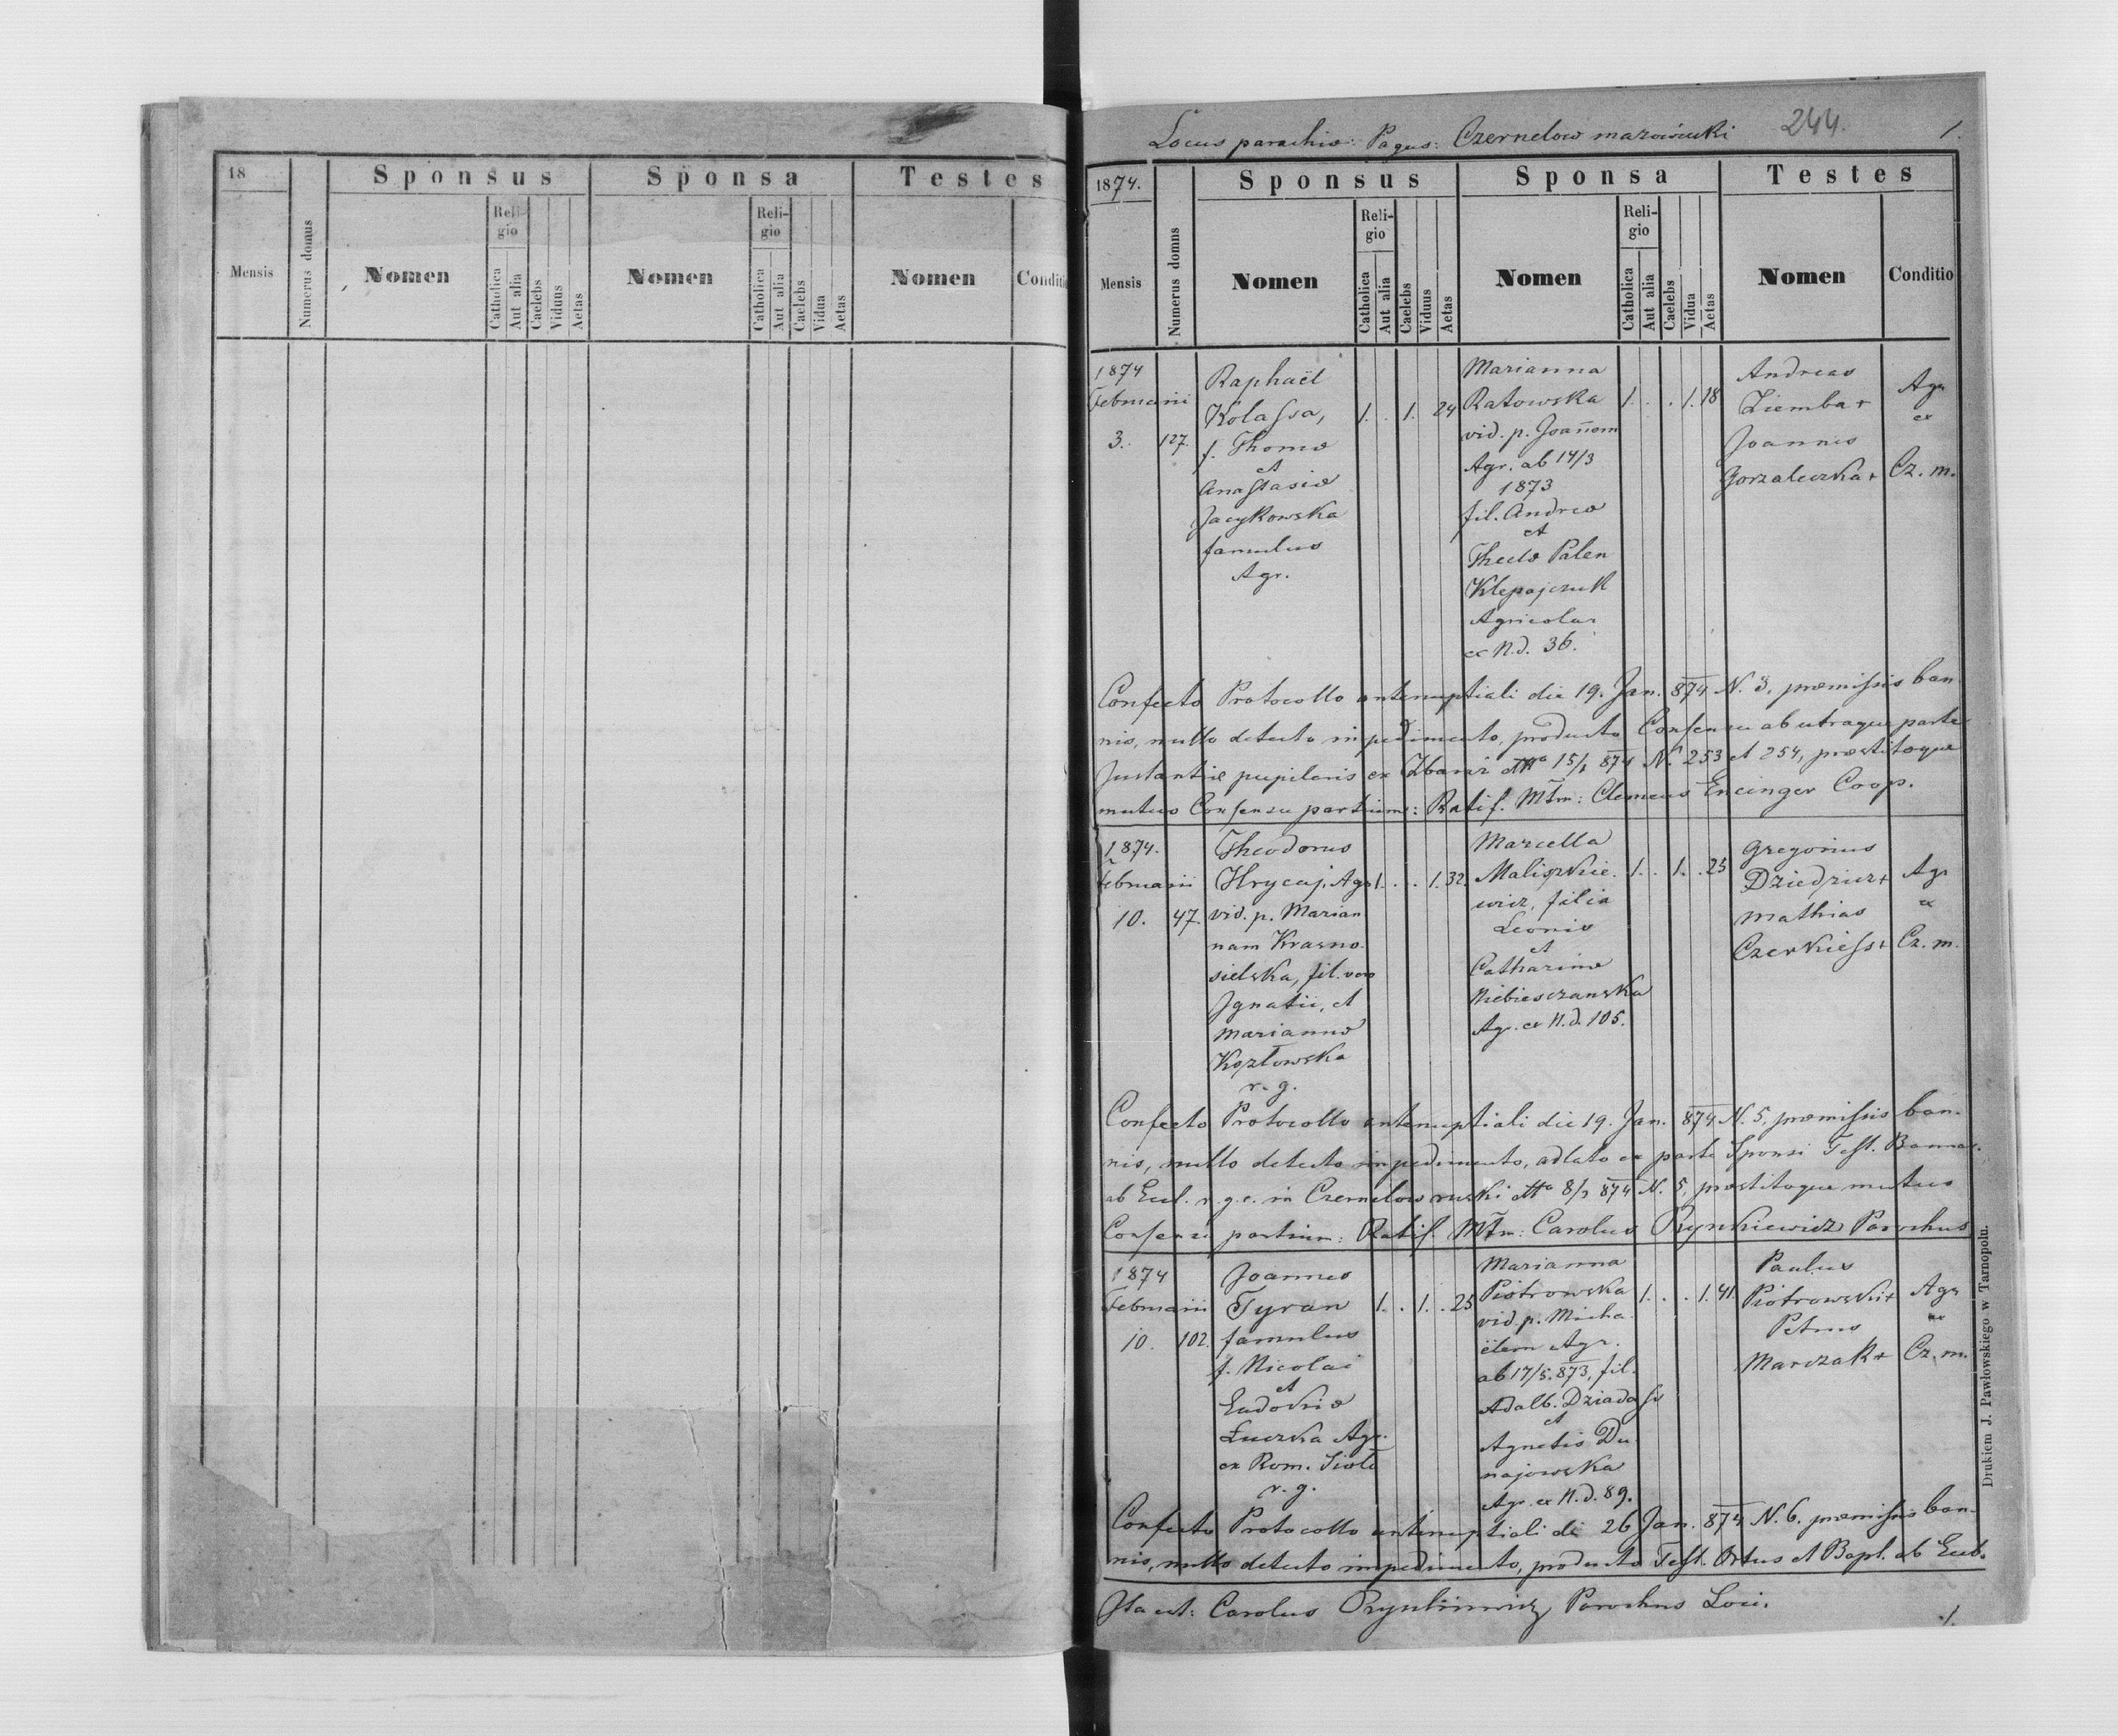 18
Sponsus
Sponsa
Testes
Mensis
Numerus domus
Nomen
Religio
Catholica
Aut alia
Caelebs
Viduus
Aetas
Nomen
Religio
Catholica
Aut alia
Caelebs
Vidua
Aetas
Nomen
Conditio
Locus parochiæ: Pagus: Czernelow mazowiecki
244.
1.
1874.
Sponsus
Sponsa
Testes
Mensis
Numerus domus
Nomen
Reli-
gio
Catholica
Aut alia
Caelebs
Viduus
Aetas
Nomen
Reli-
gio
Catholica
Aut alia
Caelebs
Vidua
Aetas
Nomen
Conditio
1874
Februarii
3.
127.
Raphaël
Kolassa,
f. Thomæ
et
Anastasiæ
Jacykowska
famulus
Agr.
1. . 1. 24
Marianna
Ratowska
vid. p. Joan̄em
Agr. ab 14/3
1873
fil. Andreæ
et
Theclæ Palen
Klepajczuk
Agricolar
ex N.d. 36.
1. . . 1. 18
Andreas
Ziemba +
Joannes
Gorzaleczka +
Agr
ex
Cz. m.
Confecto Protocollo antenuptiali die 19. Jan. 874 N. 3, præmissis ban-
nis, nullo detecto impedimento, producto Consensu ab utraque parte
Instantiæ pupilaris ex Zbaraz dtto 15/1 874 N. 253 et 254, præstitoque
mutuo Consensu partium: Ratif. Mtm: Clemens Encinger Coop.
1874.
Februarii
10.
47.
Theodorus
Hrycaj, Agr
vid. p. Marian
nam Krasno-
sielska, fil. vero
Ignatii, et
Mariannæ
Kozłowska
r. g.
1. . . 1. 32.
Marcella
Maliszkie-
wicz, filia
Leonis
et
Catharinæ
Niebieszczanska
Agr. ex N.d. 105.
1. . 1. . 23
Gregorius
Dziedzic +
Mathias
Czerkiess +
Agr
ex
Cz. m.
Confecto Protocollo antenuptiali die 19. Jan. 874 N. 5, præmissis ban-
nis, nullo detecto impedimento, adlato ex parte Sponsi Test. Bannor.
ab Eccl. r. g. c. in Czernelow ruski dtto 8/2 874 N. 5, præstitoque mutuo
Consensu partium: Ratif. Mtm: Carolus Rynkiewicz Parochus
1874
Februarii
10.
102.
Joannes
Tyran
famulus
f. Nicolai
et
Eudoxiæ
Łuczka Agr.
ex Rom. Sioło
r. g.
1. . 1. . 25
Marianna
Piotrowska
vid. p. Micha-
ëlem Agr.
ab 17/5. 873, fil.
Adalb. Dziadass
et
Agnetis Du-
najowska
Agr. ex N.d. 89.
1. . . 1. 41
Paulus
Piotrowski +
Petrus
Marczak +
Agr
ex
Cz. m.
Confecto Protocollo antenuptiali die 26 Jan. 874 N. 6. præmissis ban-
nis, nullo detecto impedimento, producto Test. Ortus et Bapt. ab Eccl.
Ita est: Carolus Rynkiewicz Parochus Loci.
1.
Drukiem J. Pawłowskiego w Tarnopolu.